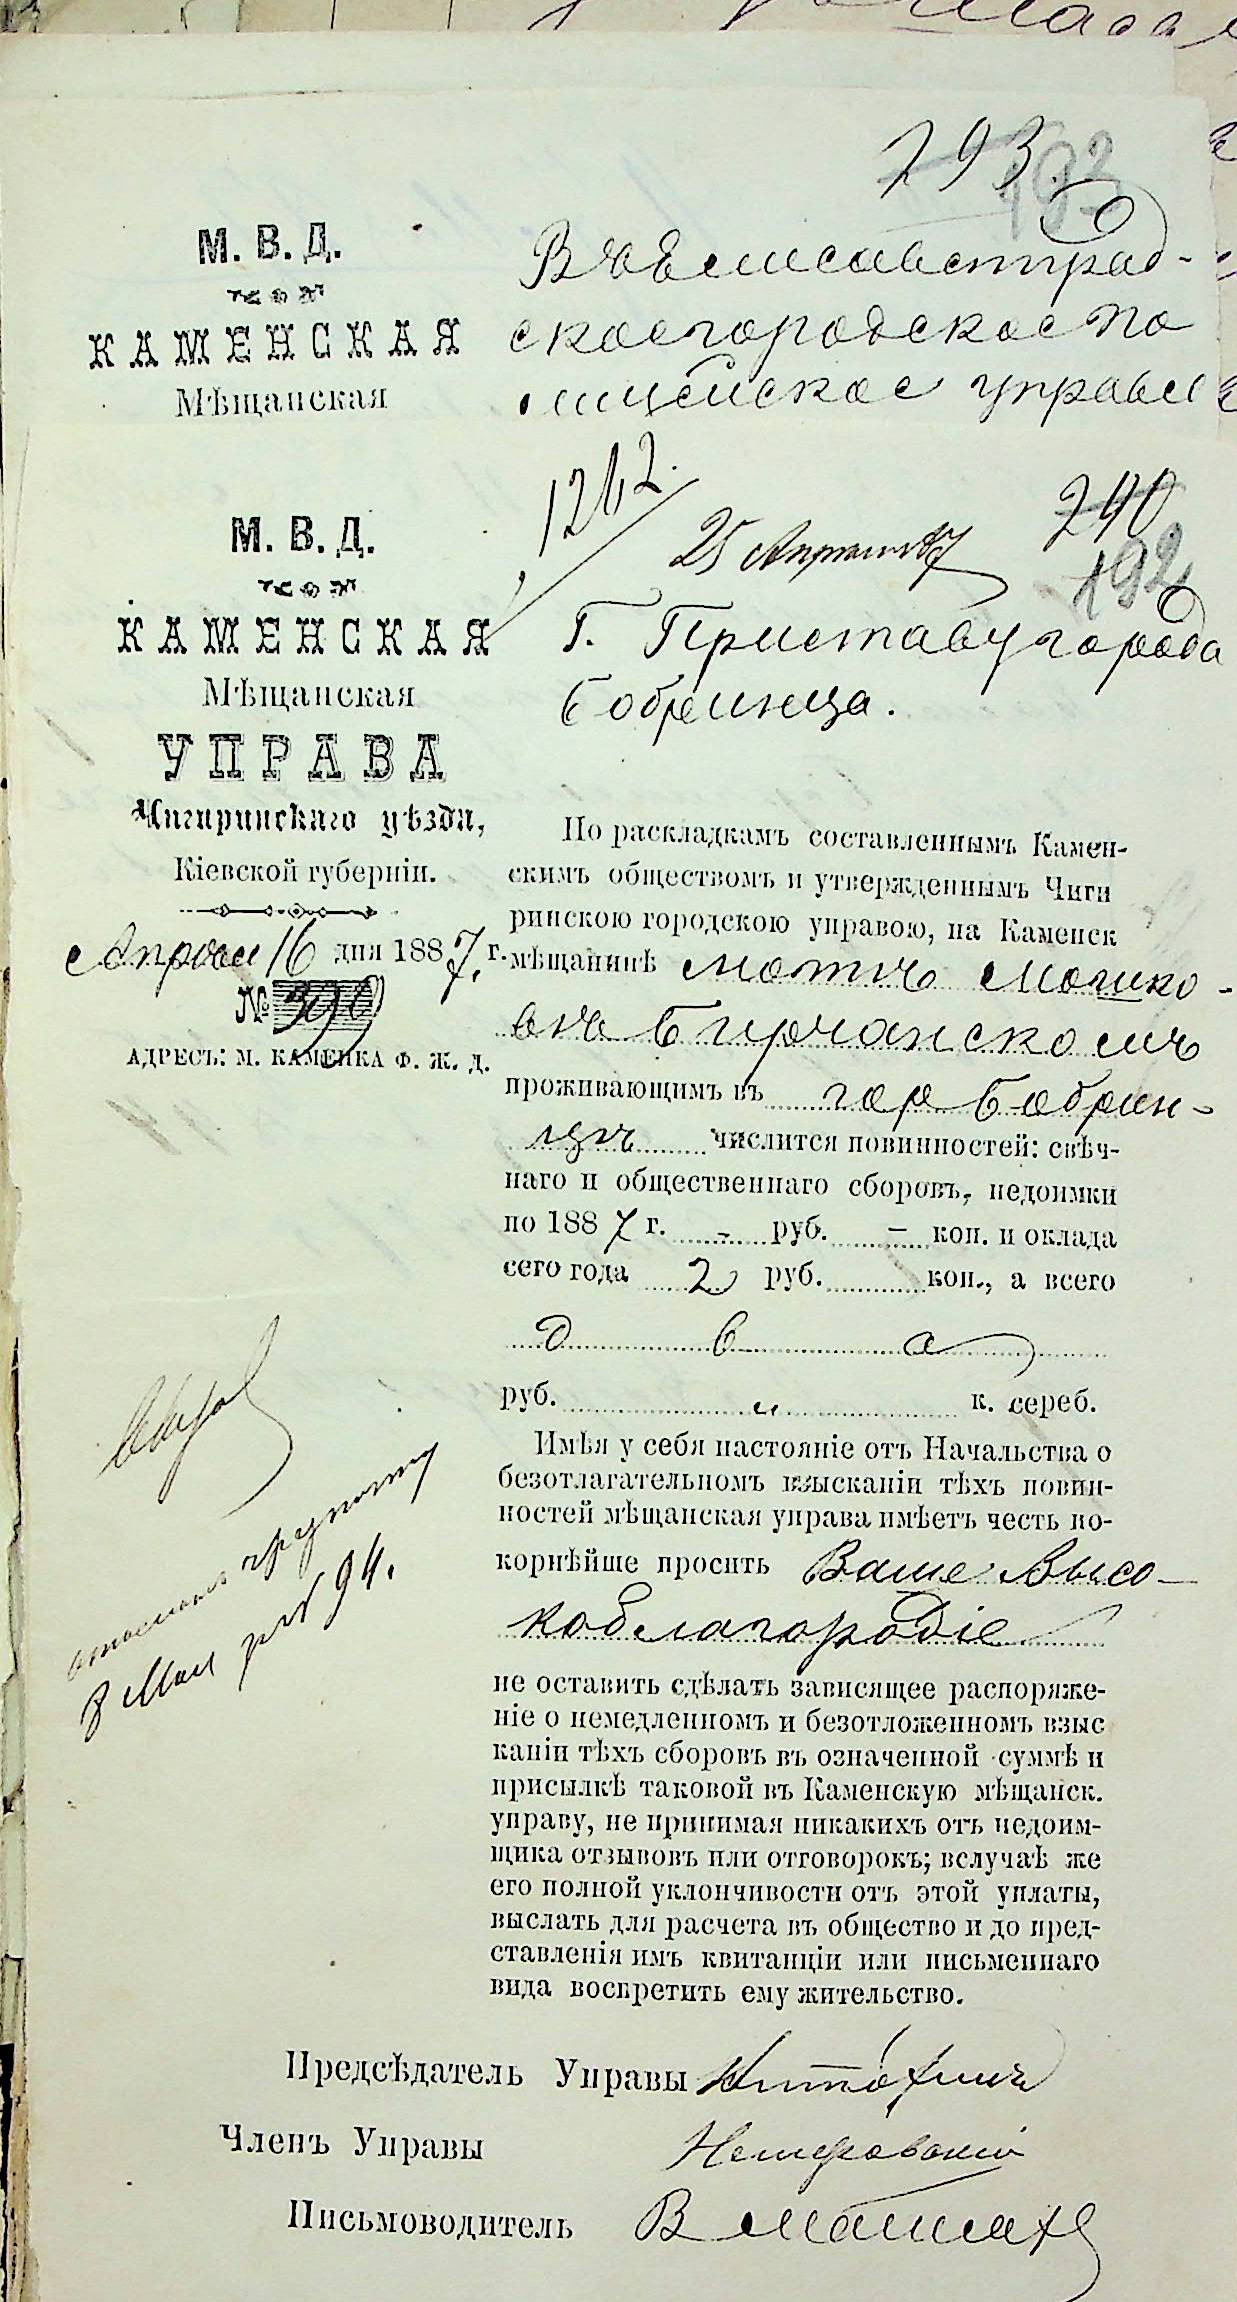 793
193
М. В. Д.
КАМЕНСКАЯ
Мѣщанская
Въ Елисаветград-
ское городское по
лицейское управле
1212.
25 Апреля 87
240
192
М. В. Д.
КАМЕНСКАЯ
Мѣщанская
УПРАВА
Чигиринскаго уѣзда,
Кіевской губерніи.
Апреля 16 дня 1887 г.
№ 390
АДРЕСЪ: М. КАМЕНКА Ф. Ж. Д.
Г. Приставу города
Бобринца.
По раскладкамъ составленнымъ Камен-
скимъ обществомъ и утвержденнымъ Чиги
ринскою городскою управою, на Каменск
мѣщанинѣ Мотъ Мошко-
вѣ Бирчанскомъ
проживающимъ въ гор Бобрин-
цѣ числится повинностей: свѣч-
наго и общественнаго сборовъ, недоимки
по 1887 г. - руб. - коп. и оклада
сего года 2 руб. коп., а всего
два
руб. „ к. сереб.
Имѣя у себя настояніе отъ Начальства о
безотлагательномъ взысканіи тѣхъ повин-
ностей мѣщанская управа имѣетъ честь по-
корнѣйше просить Ваше Высо-
коблагородіе
не оставить сдѣлать зависящее распоряже-
ніе о немедленномъ и безотложенномъ взыс
каніи тѣхъ сборовъ въ означенной суммѣ и
присылкѣ таковой въ Каменскую мѣщанск.
управу, не принимая никакихъ отъ недоим-
щика отзывовъ или отговорокъ; вслучаѣ же
его полной уклончивости отъ этой уплаты,
выслать для расчета въ общество и до пред-
ставленія имъ квитанціи или письменнаго
вида воспретить ему жительство.
8 Мая 94.
Предсѣдатель Управы
Членъ Управы
Письмоводитель В